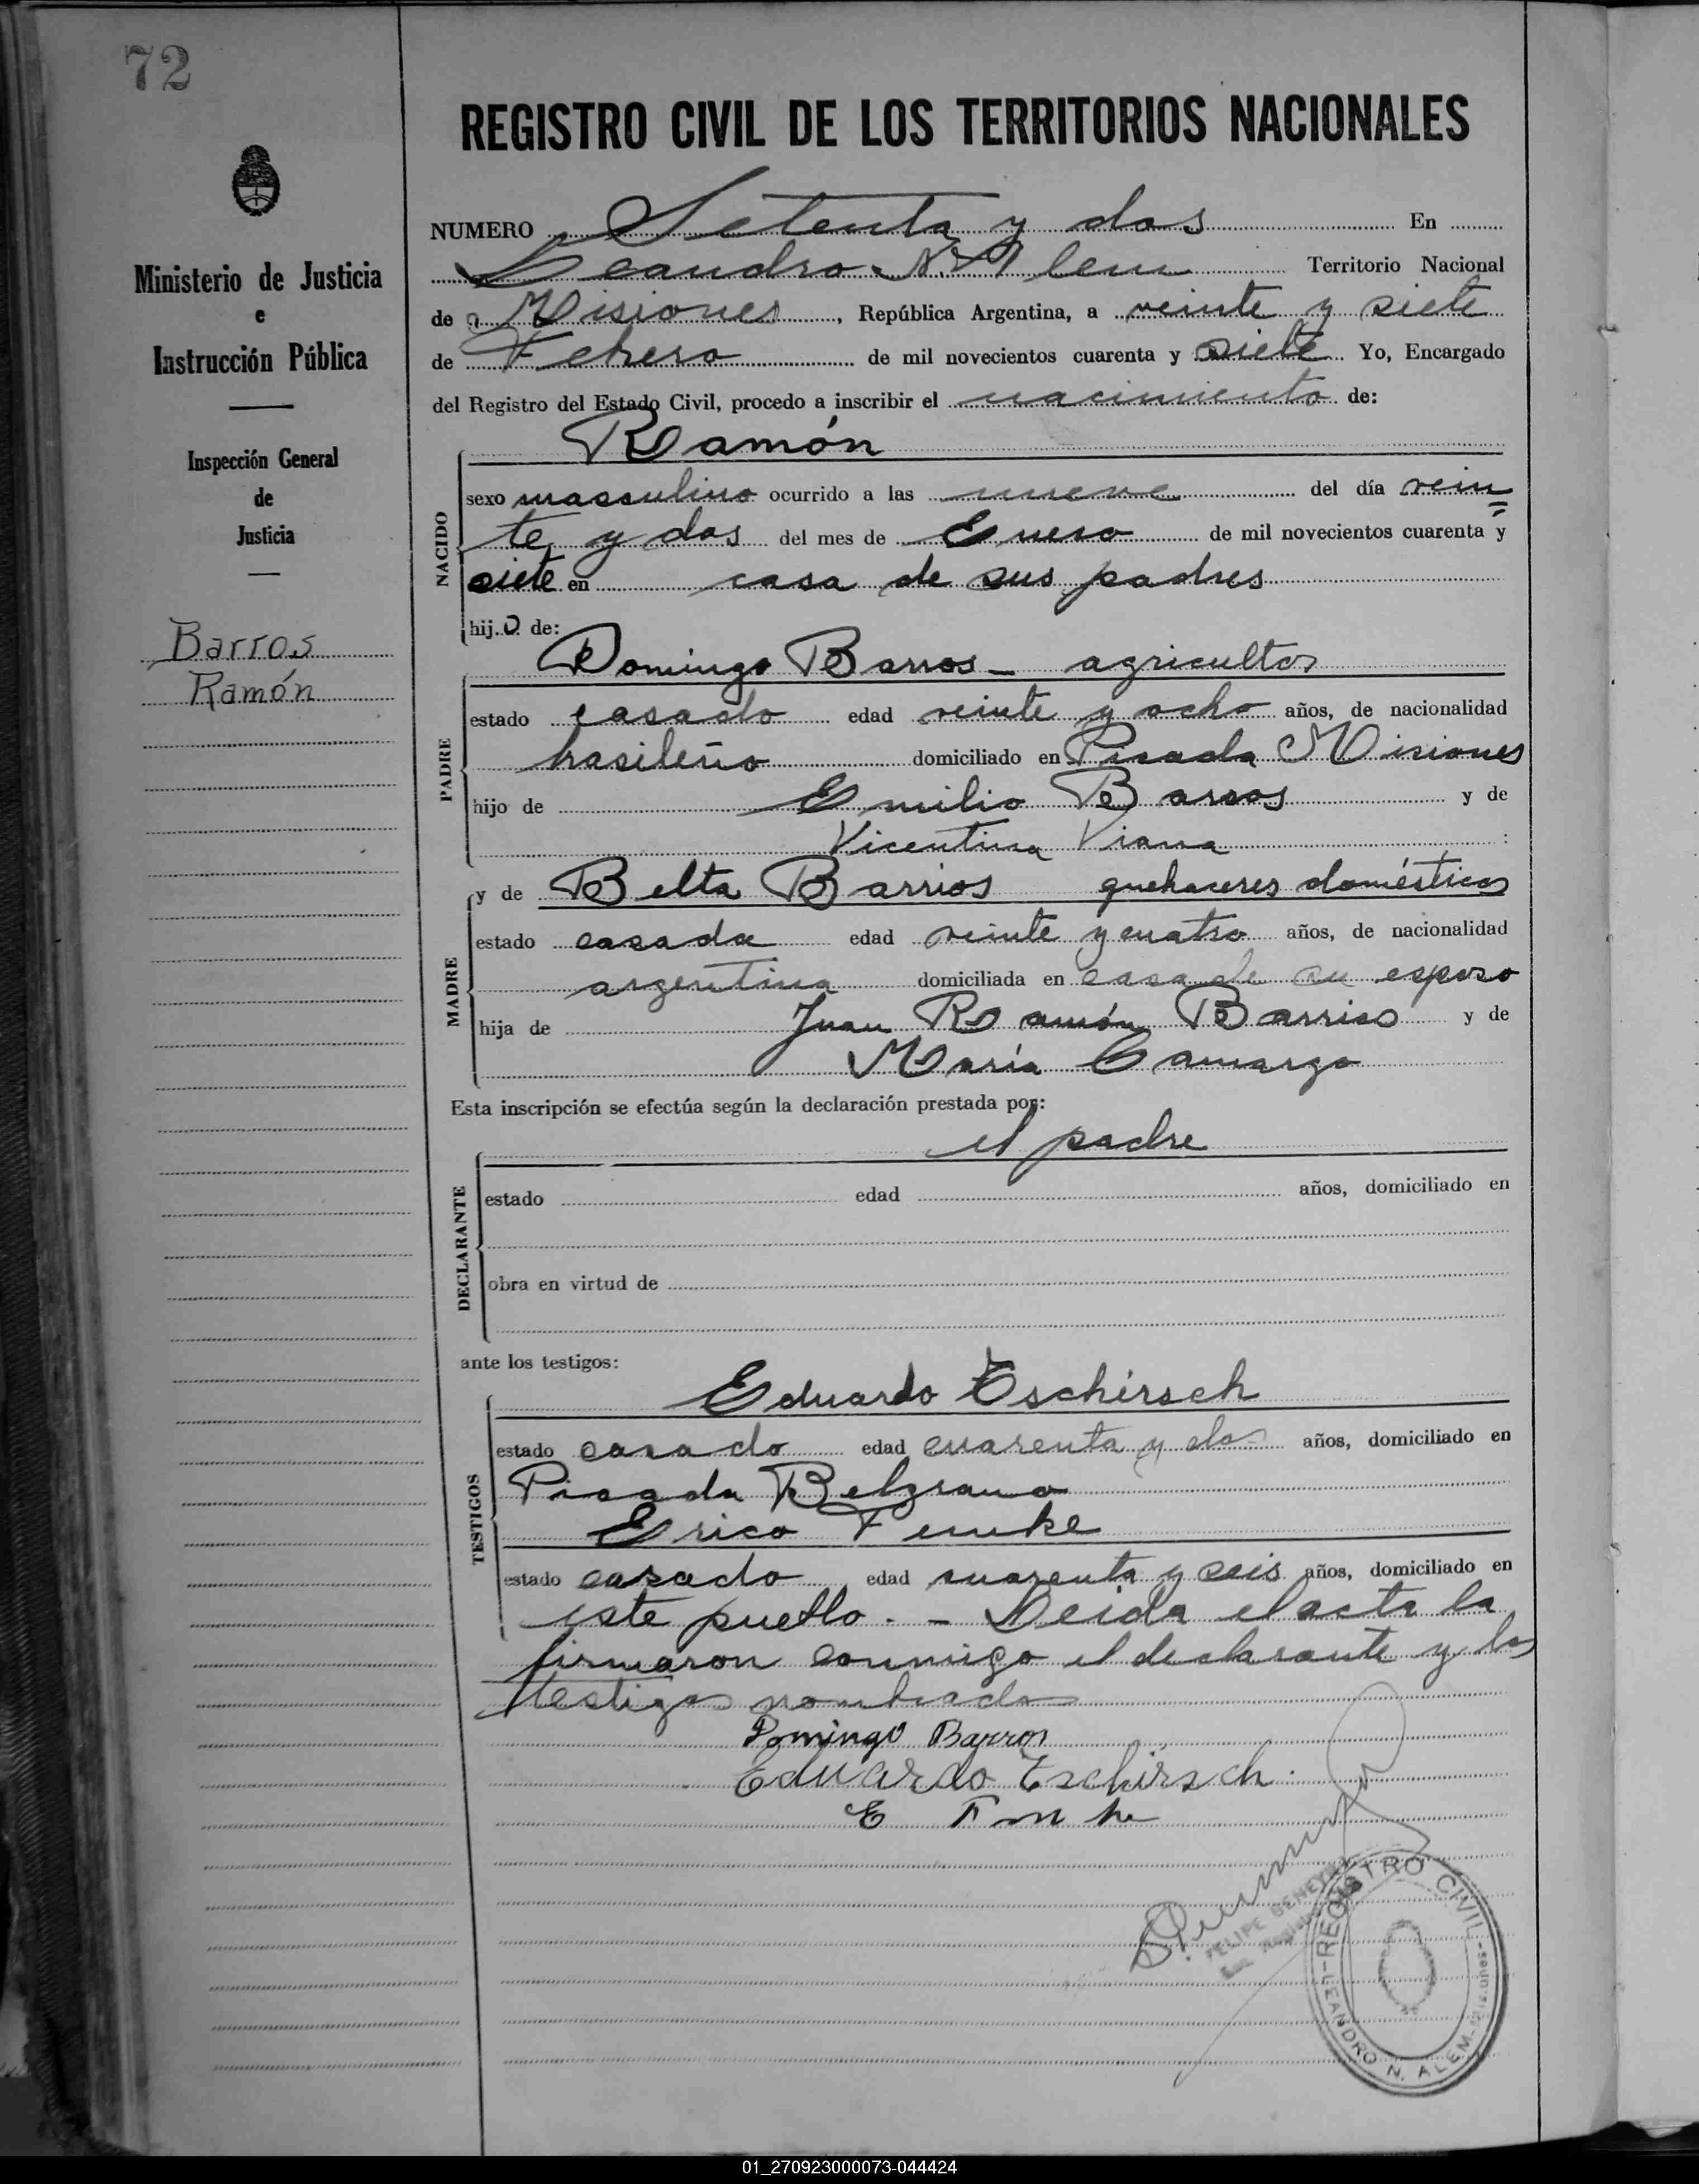 72
Ministerio de Justicia
e
Instrucción Pública
Inspección General
de
Justicia
Barros
Ramón
REGISTRO CIVIL DE LOS TERRITORIOS NACIONALES
NUMERO Setenta y dos En
Leandro N. Alem Territorio Nacional
de Misiones, República Argentina, a veinte y siete
de Febrero de mil novecientos cuarenta y siete Yo, Encargado
del Registro del Estado Civil, procedo a inscribir el nacimiento de:
Ramón
NACIDO
sexo masculino ocurrido a las nueve del día vein=
te y dos del mes de Enero de mil novecientos cuarenta y
siete en casa de sus padres
hijo de:
Domingo Barros - agricultor
PADRE
estado casado edad veinte y ocho años, de nacionalidad
brasileño domiciliado en Picada Misiones
hijo de Emilio Barros y de
Vicentina Viana
y de Belta Barrios quehaceres domésticos
MADRE
estado casada edad veinte y cuatro años, de nacionalidad
argentina domiciliada en casa de su esposo
hija de Juan Ramón Barrios y de
María Camargo
Esta inscripción se efectúa según la declaración prestada por:
el padre
DECLARANTE
estado edad años, domiciliado en
obra en virtud de
ante los testigos:
Eduardo Tschirsch
TESTIGOS
estado casado edad cuarenta y dos años, domiciliado en
Picada Belgrano
Erico Funke
estado casado edad cuarenta y seis años, domiciliado en
este pueblo. - Leida el acta la
firmaron conmigo el declarante y los
testigos nombrados
Domingo Barros
Eduardo Tschirsch.
E Funke
FELIPE
REGISTRO CIVIL - Misiones - LEANDRO N. ALEM -
01_270923000073-044424